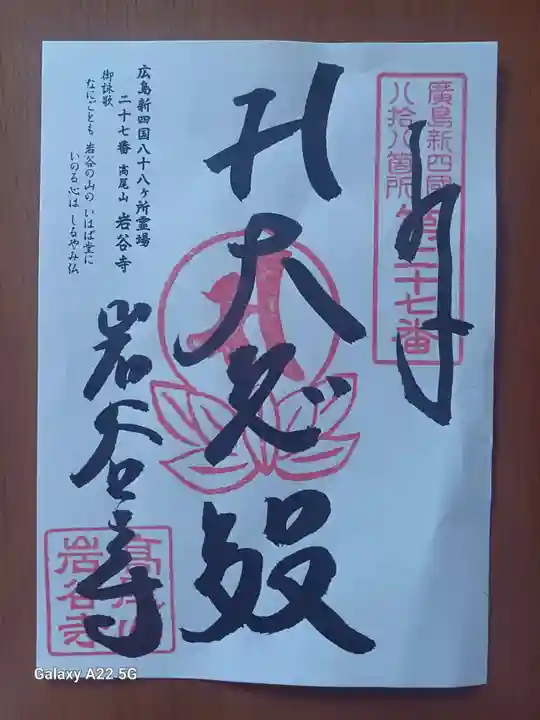 廣島新四國
八拾八箇所第二十七番
奉拝
大悲殿
岩谷寺
広島新四国八十八ヶ所霊場
二十七番 高尾山 岩谷寺
御詠歌
なにごとも 岩谷の山の いはば堂に
いのる心は しるやみ仏
高尾山
岩谷寺
Galaxy A22 5G